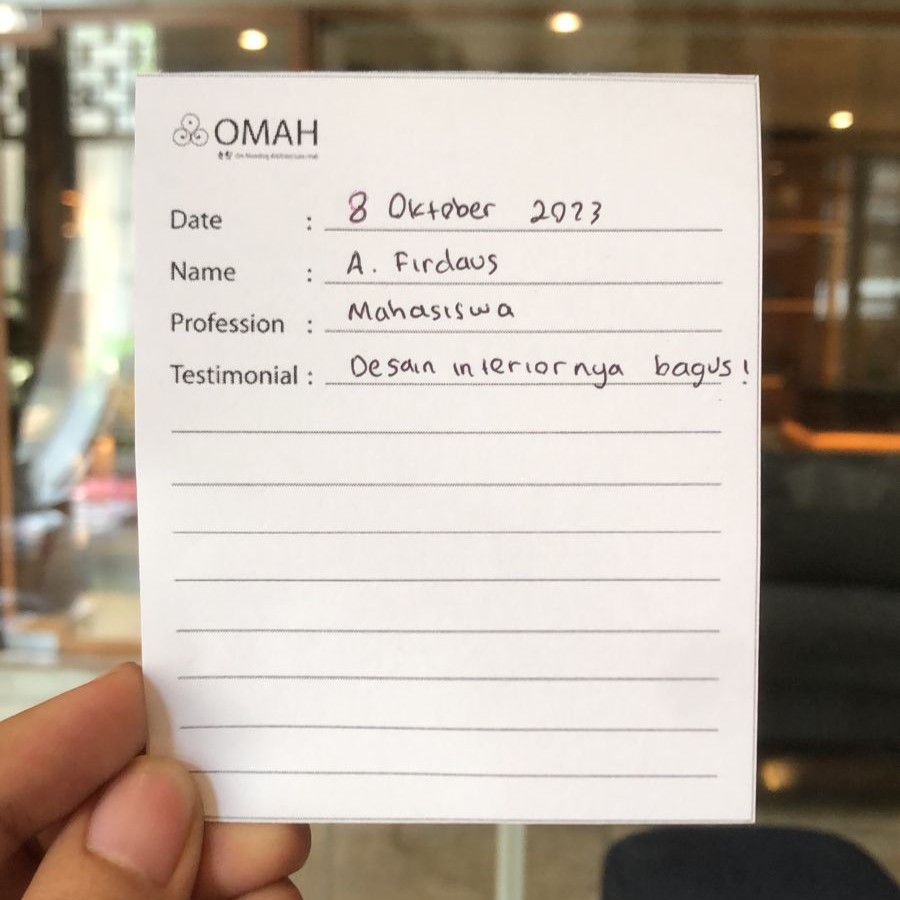 OMAH
Date : 8 Oktober 2023
Name : A. Firdaus
Profession : Mahasiswa
Testimonial : Desain interiornya bagus!